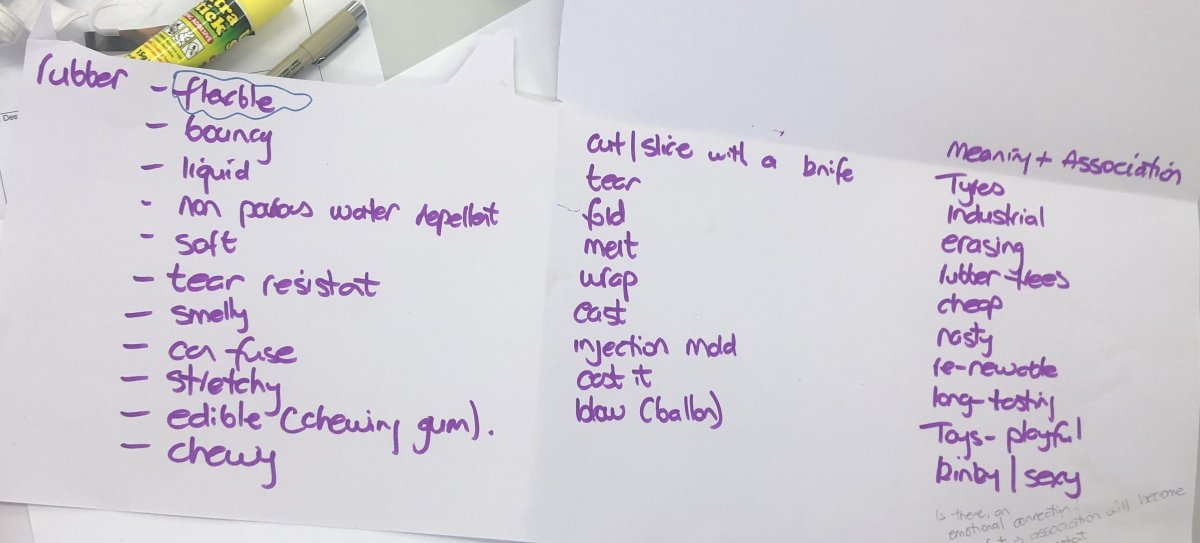 xtra
stick
rubber - flexble
- bouncy
- liquid
- non porous water repellent
- soft
- tear resistant
- smelly
- can fuse
- stretchy
- edible (chewing gum).
- chewy
cut/slice with a knife
tear
fold
melt
wrap
cast
injection mold
cast it
blow (ballon)
Meaning + Association
Tyres
Industrial
erasing
rubber trees
cheap
nasty
re-newable
long-lasting
Toys - playful
kinky/sexy
Is there, an
emotional connection.
association will become
Des